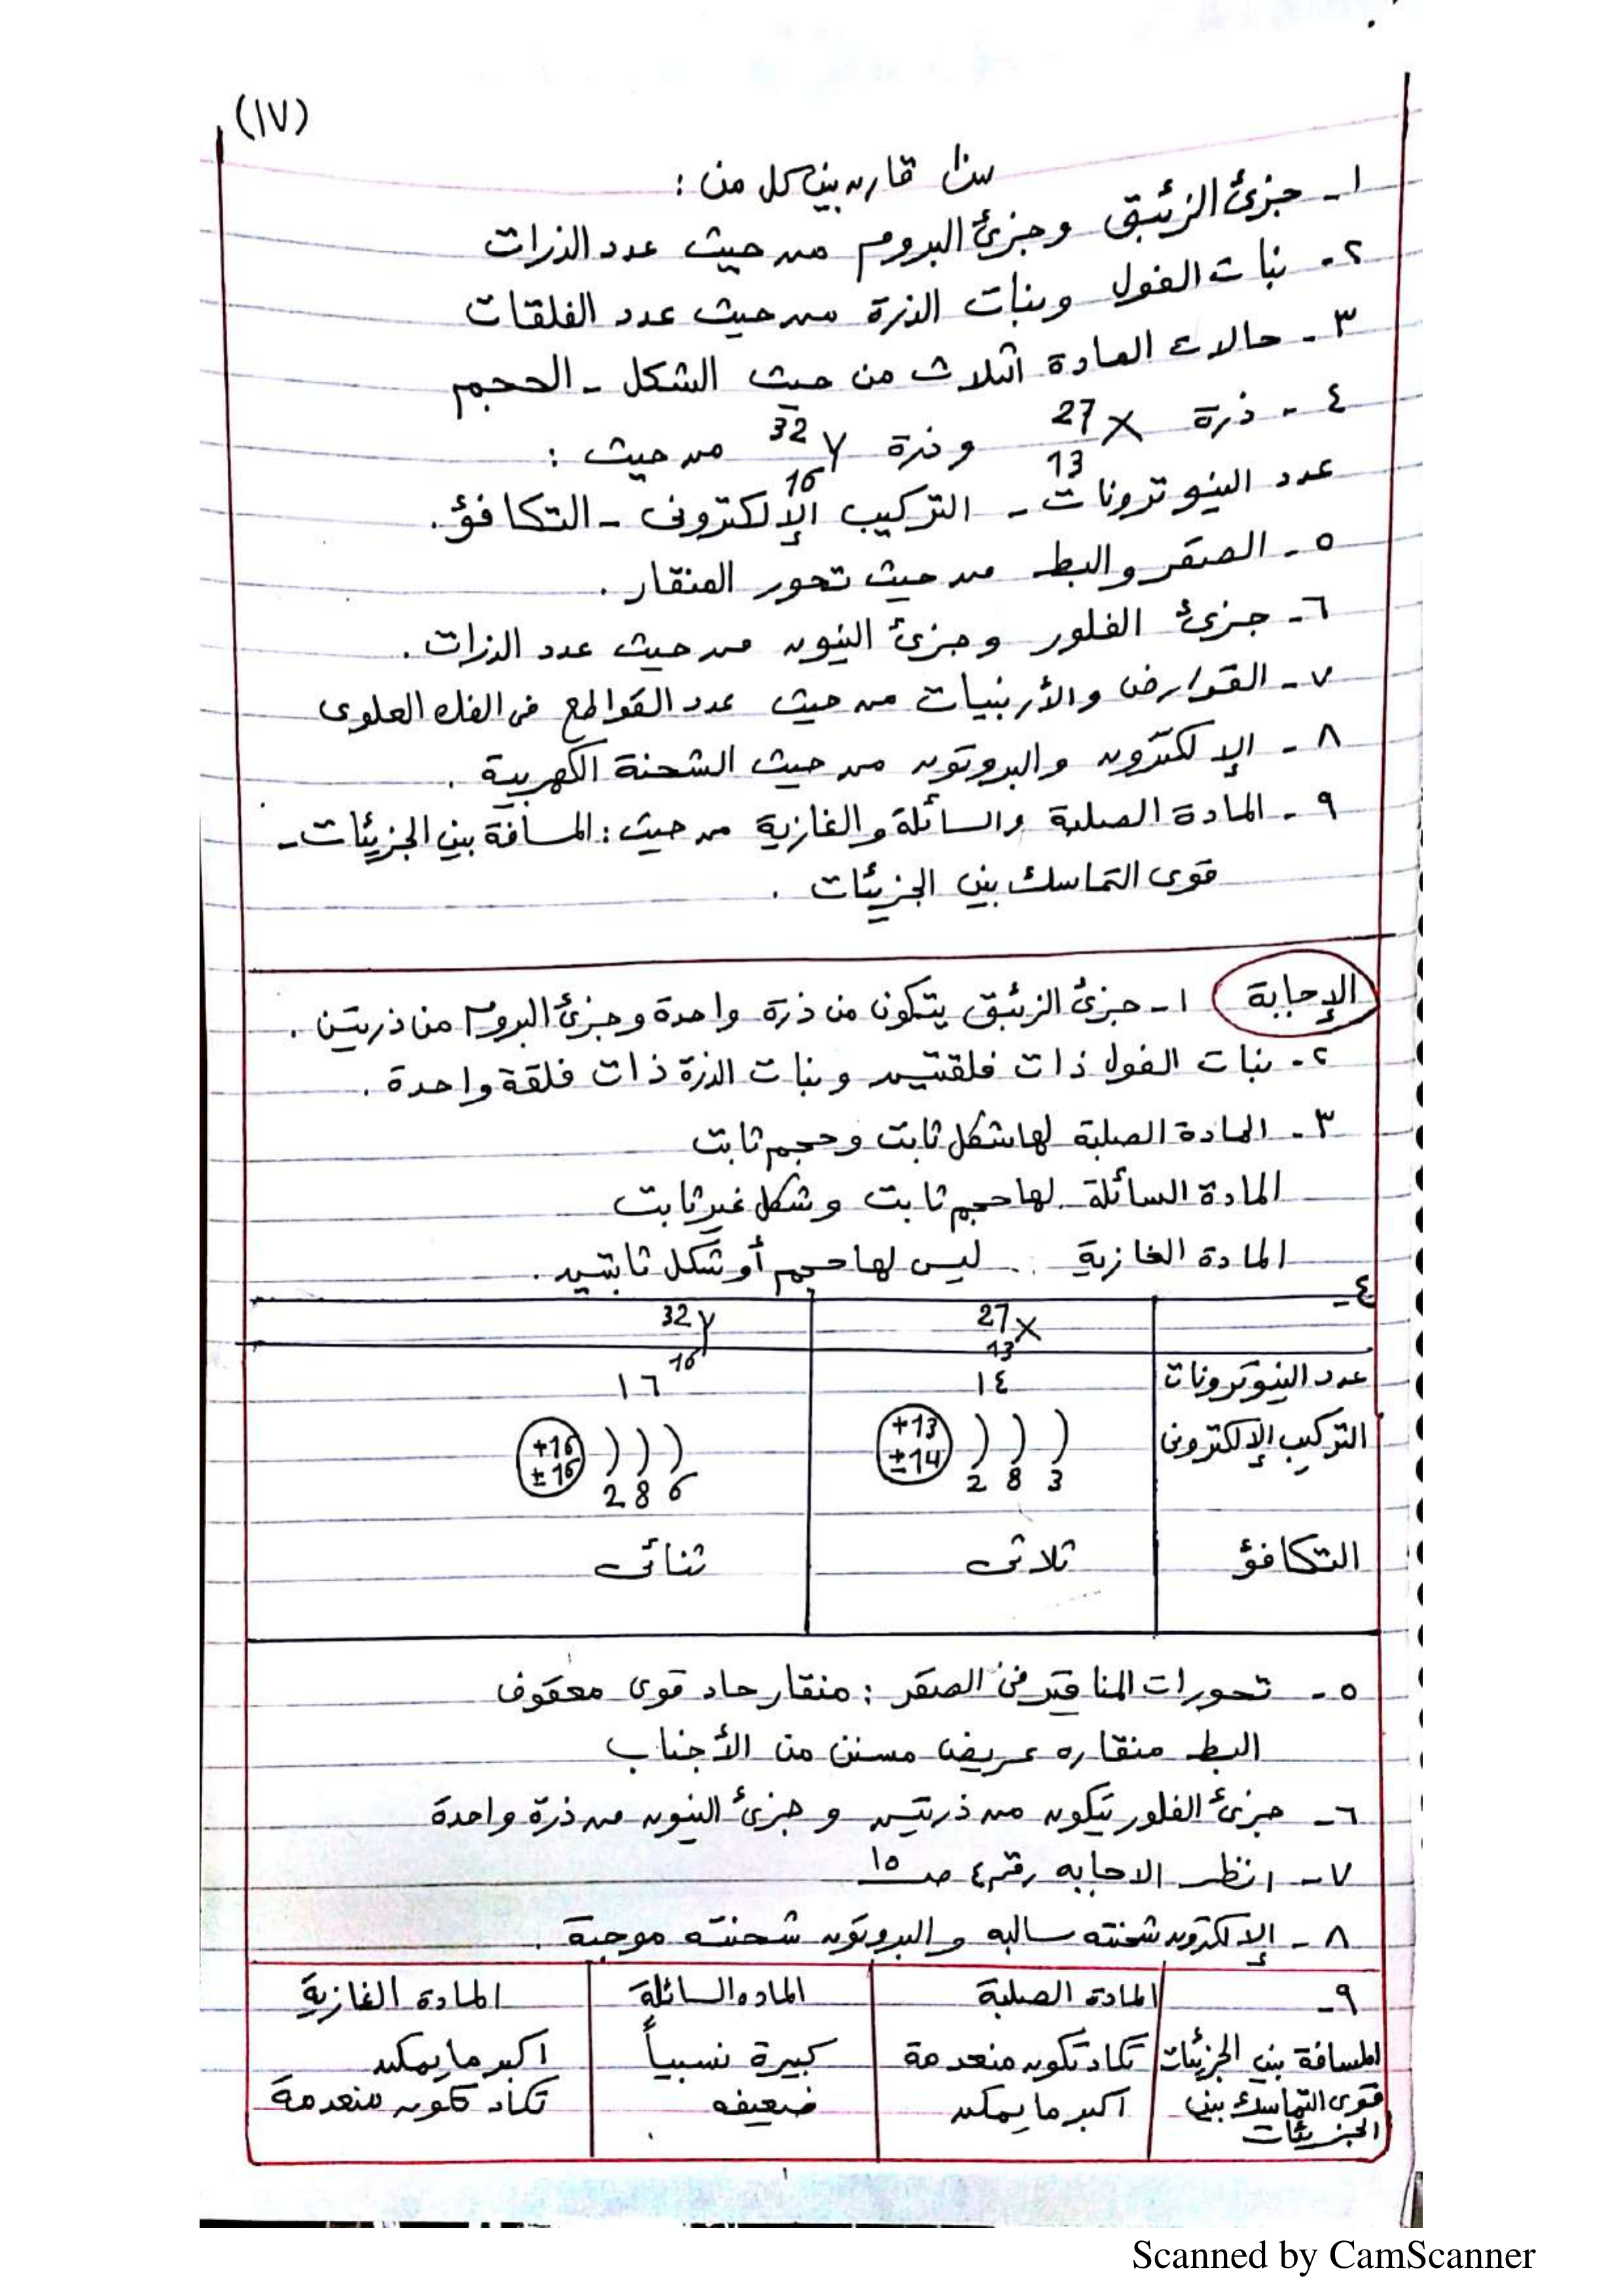 (١٧)
س١ قارن بين كل من :
١- جزئ الزئبق وجزئ البروم من حيث عدد الذرات
٢- نبات الفول ونبات الذرة من حيث عدد الفلقات
٣- حالات المادة الثلاث من حيث الشكل - الحجم
٤- ذرة 27 X 13 وذرة 32 Y 16 من حيث :
عدد النيوترونات - التركيب الإلكترونى - التكافؤ .
٥- الصقر والبط من حيث تحور المنقار .
٦- جزئ الفلور وجزئ النيون من حيث عدد الذرات .
٧- القوارض والأرنبيات من حيث عدد القواطع فى الفك العلوى
٨- الإلكترون والبروتون من حيث الشحنة الكهربية .
٩- المادة الصلبة والسائلة والغازية من حيث : المسافة بين الجزيئات -
قوى التماسك بين الجزيئات .
الإجابة ١- جزئ الزئبق يتكون من ذرة واحدة وجزئ البروم من ذريتن .
٢- نبات الفول ذات فلقتين ونبات الذرة ذات فلقة واحدة .
٣- المادة الصلبة لها شكل ثابت وحجم ثابت
المادة السائلة لها حجم ثابت وشكل غير ثابت
المادة الغازية .. ليس لها حجم أو شكل ثابتين .
٤-
27 X 13 32 Y 16
عدد النيوترونات ١٤ ١٦
التركيب الإلكترونى +13 ±14 2 8 3 +16 ±16 2 8 6
التكافؤ ثلاثى ثنائى
٥- تحورات المناقير فى الصقر : منقار حاد قوى معقوف
البط منقاره عريض مسنن من الأجناب
٦- جزئ الفلور يتكون من ذرتين وجزئ النيون من ذرة واحدة
٧- انظر الاجابه رقم ٤ صـ ١٥
٨- الإلكترون شحنته سالبه والبروتون شحنته موجبة .
٩- المادة الصلبة الماده السائلة المادة الغازية
المسافة بين الجزيئات تكاد تكون منعدمة كبيرة نسبياً اكبر ما يمكن
قوى التماسك بين الجزيئات اكبر ما يمكن ضعيفه تكاد تكون منعدمة
Scanned by CamScanner